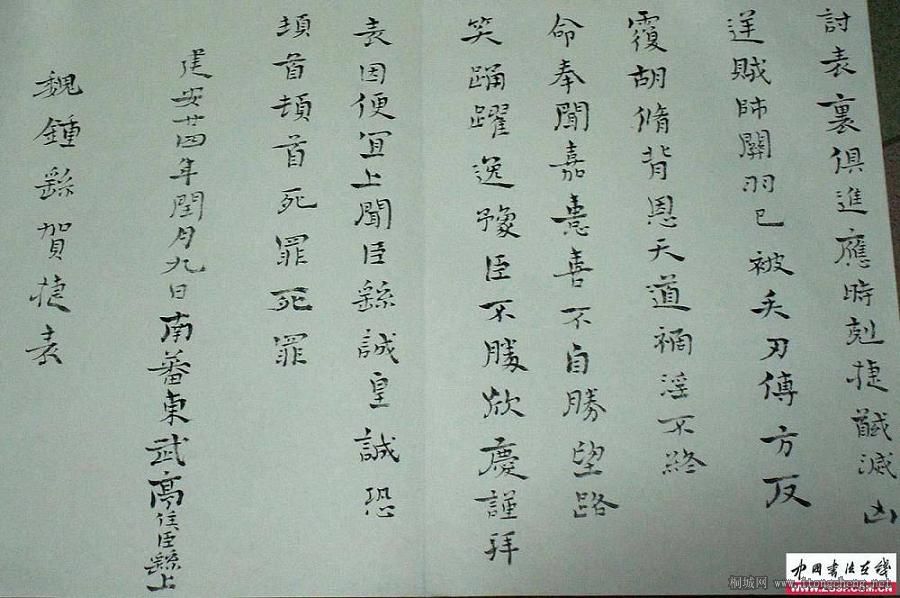 討表裏俱進應時剋捷馘滅凶
逆賊帥關羽已被矢刃傅方反
覆胡脩背恩天道禍淫不終
命奉聞嘉憙喜不自勝望路
笑踊躍逸豫臣不勝欣慶謹拜
表因便宜上聞臣繇誠皇誠恐
頓首頓首死罪死罪
建安廿四年閏月九日南蕃東武亭侯臣繇上
魏鍾繇賀捷表
中国书法在线
桐城网 www.itongcheng.net
www.zgsf.com.cn